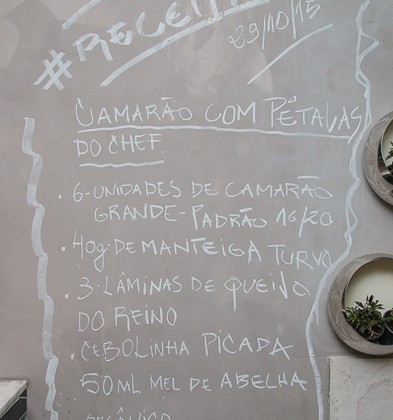 #RECEITA
29/10/15
CAMARÃO COM PÉTALAS
DO CHEF.
• 6-UNIDADES DE CAMARÃO
GRANDE-PADRÃO 16/20
• 40g DE MANTEIGA TURVA
• 3-LÂMINAS DE QUEIJO
DO REINO
• CEBOLINHA PICADA
50ML MEL DE ABELHA